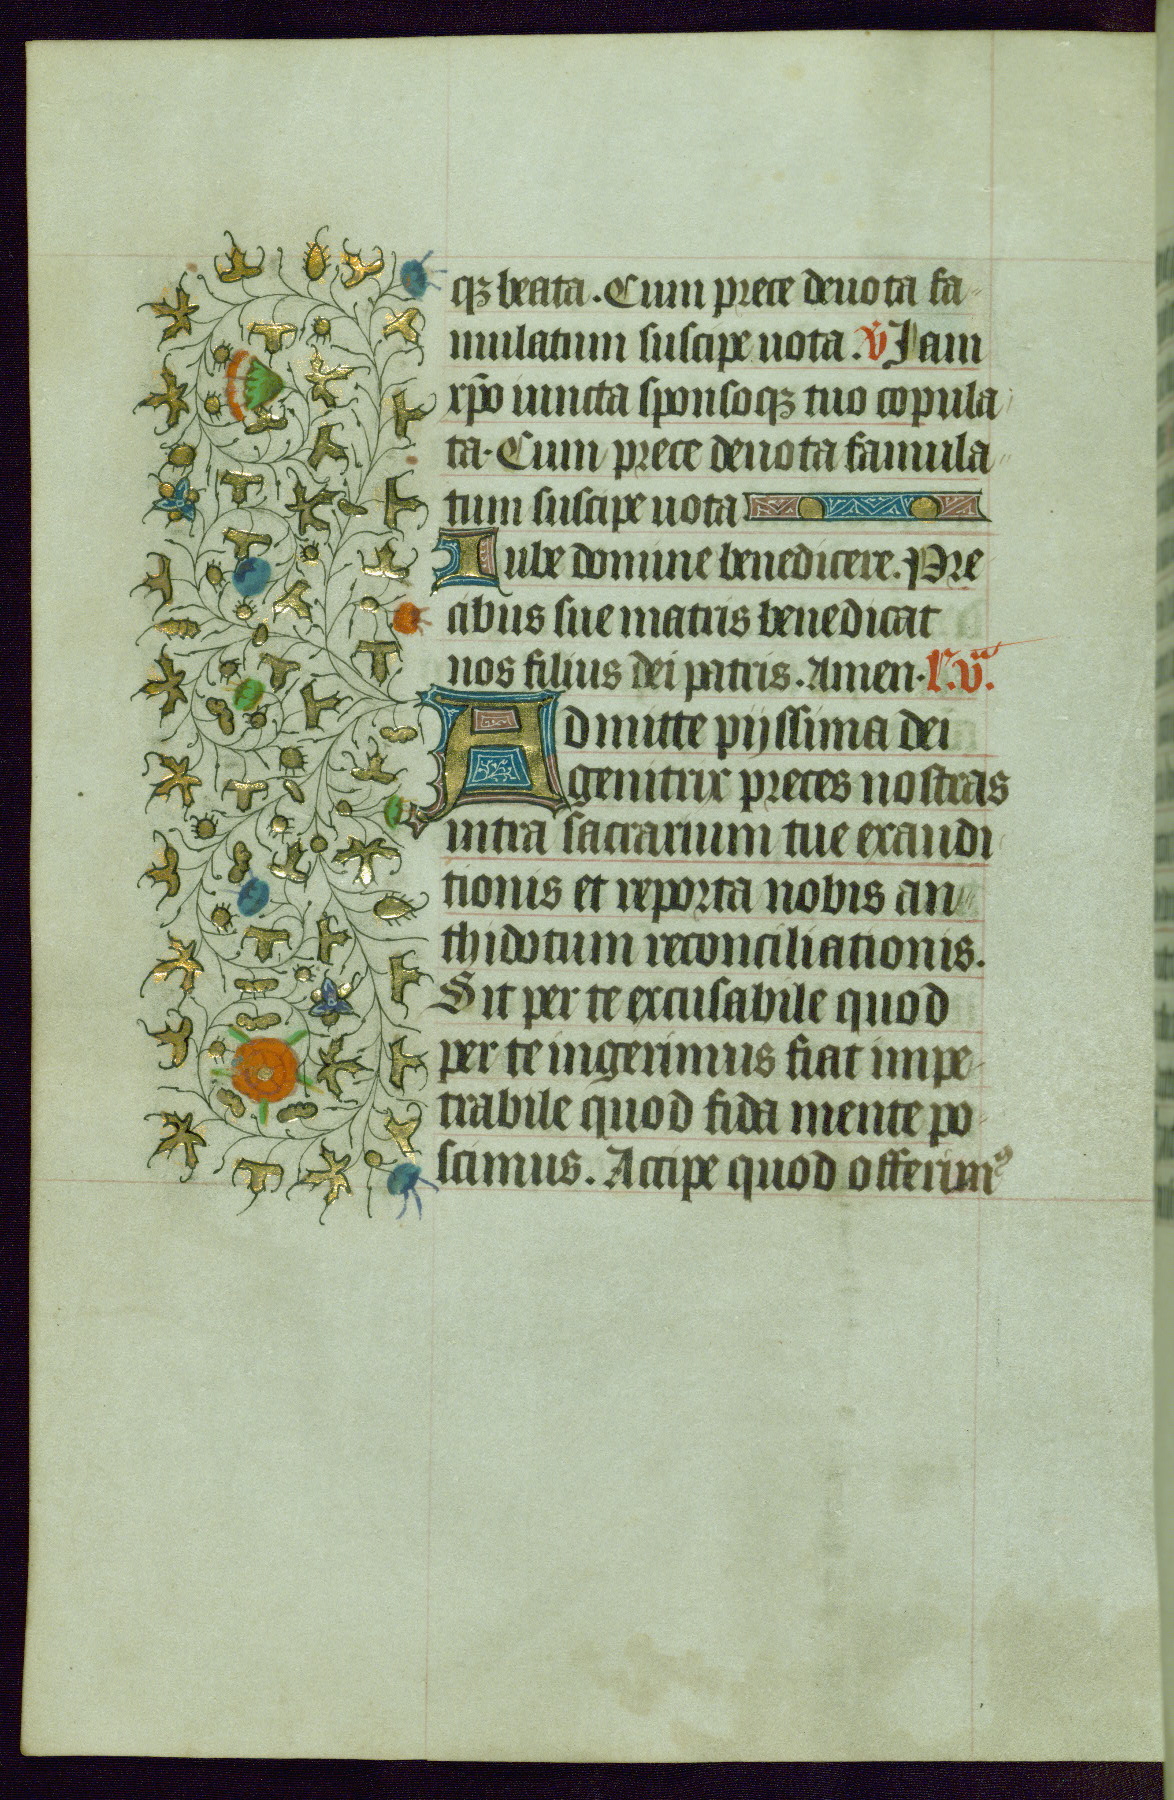 qꝫ beata. Cum prece deuota fa-
mulatum suscipe uota. V̄ Jam
xp̄o iuncta sponsoqꝫ tuo copula
ta. Cum prece deuota famula-
tum suscipe uota
Iube domine benedicere. Pre
cibus sue matris benedicat
nos filius dei patris. Amen. l'. va.
Admitte pijssima dei
genitrix preces nostras
intra sacrarium tue exaudi
tionis et reporta nobis an-
thidotum reconciliationis.
Sit per te excusabile quod
per te ingerimus fiat impe-
trabile quod fida mente po-
scimus. Accipe quod offerimꝰ